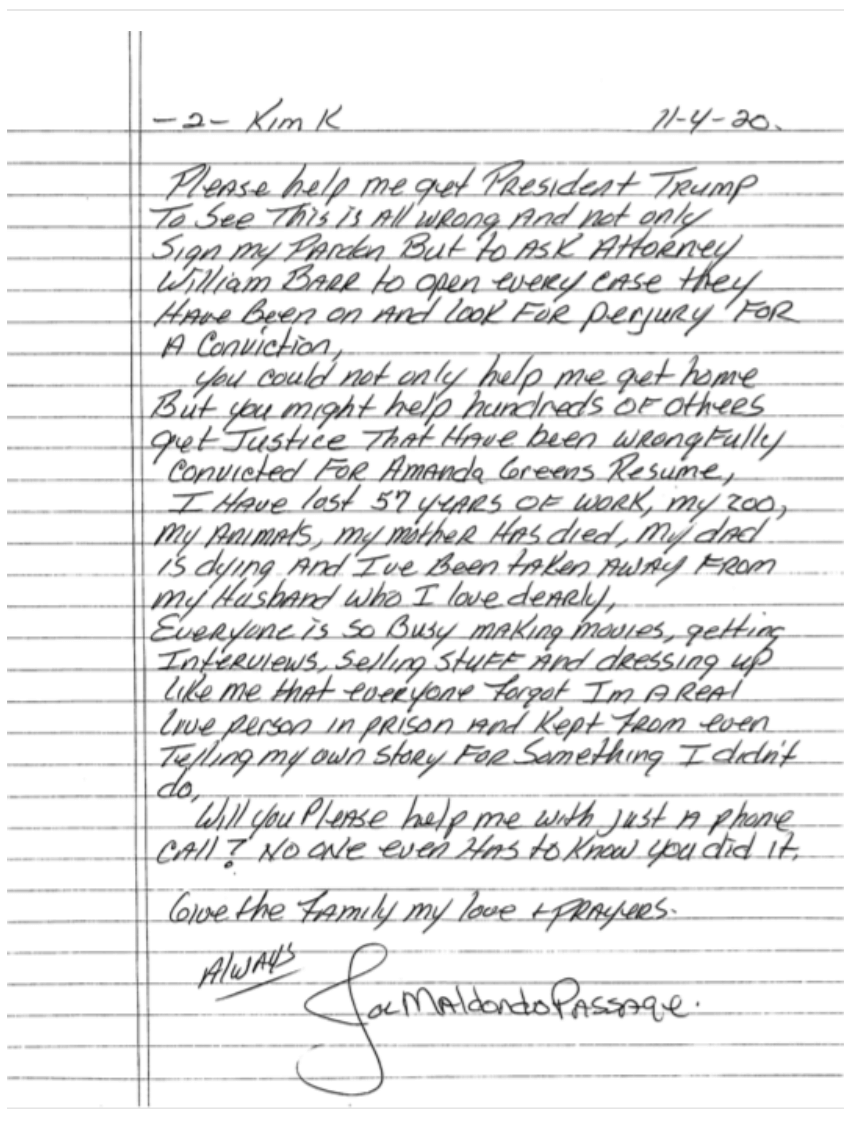 -2- Kim K 11-4-20.
Please help me get President Trump
To See This is All wrong And not only
Sign my Pardon But to Ask Attorney
William Barr to open every case they
Have Been on And look For perjury For
A Conviction,
you could not only help me get home
But you might help hundreds of others
get Justice That Have been wrongfully
Convicted For Amanda Greens Resume,
I Have lost 57 years of work, my zoo,
my Animals, my mother Has died, my dad
is dying And Ive Been taken Away From
my Husband who I love dearly,
Everyone is so Busy making movies, getting
Interviews, Selling Stuff And dressing up
like me that everyone Forgot Im A Real
live person in prison and Kept From even
Telling my own Story For Something I didn't
do,
Will you Please help me with just A phone
call? No one even Has to Know you did it.
Give the Family my love + Prayers.
Always
Joe MaldondoPassage.